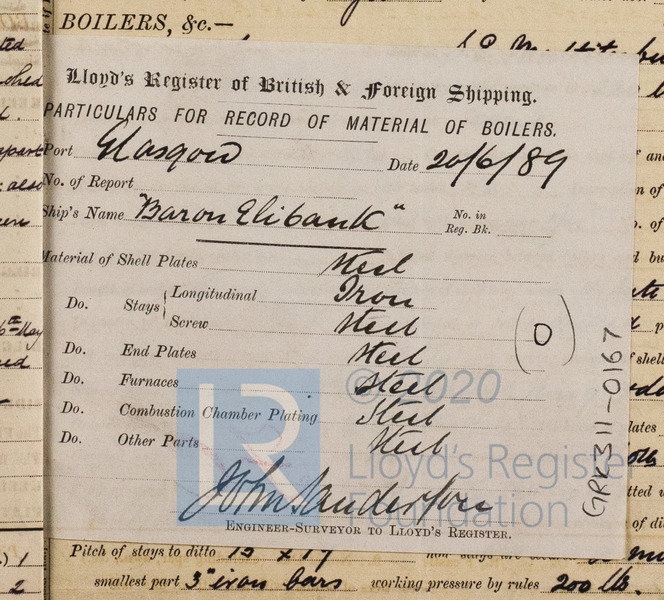 BOILERS, &c.—
Lloyd's Register of British & Foreign Shipping.
PARTICULARS FOR RECORD OF MATERIAL OF BOILERS.
Port Glasgow Date 20/6/89
No. of Report
Ship's Name "Baron Elibank" No. in Reg. Bk.
Material of Shell Plates Steel
Do. Stays { Longitudinal Iron
Screw Steel
Do. End Plates Steel
Do. Furnaces Steel
Do. Combustion Chamber Plating Steel
Do. Other Parts Steel
(0)
GRK311-0167
John Sanderson
ENGINEER-SURVEYOR TO LLOYD'S REGISTER.
© 2020
Lloyd's Register
Foundation
Pitch of stays to ditto
smallest part 3" iron bars working pressure by rules 200 lb.